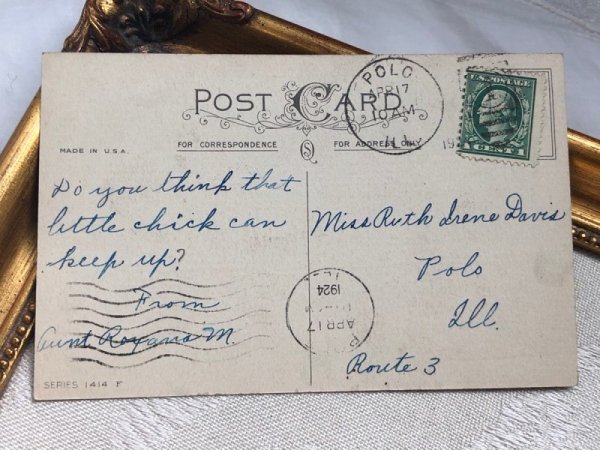 POST CARD
POLO
APR 17
10 AM
ILL.
19
U.S. POSTAGE
MADE IN U.S.A.
FOR CORRESPONDENCE
FOR ADDRESS ONLY
Do you think that
little chick can
keep up?
From
Aunt Roxana M.
Miss Ruth Irene Davis
Polo
Ill.
Route 3
APR 17
1924
SERIES 1414 F